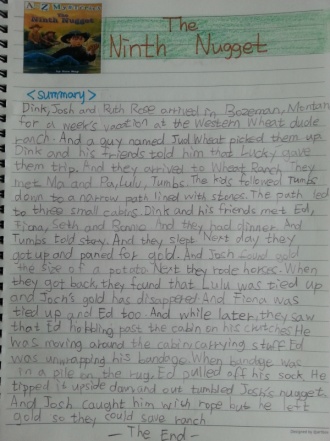 A to Z Mysteries
The Ninth Nugget
The
Ninth Nugget
<summary>
Dink, Josh and Ruth Rose arrived in Bozeman, Montan
for a week's vacation at the Western Wheat dude
ranch. And a guy named Jud Wheat picked them up
Dink and his friends told him that Lucky gave
them trip. And they arrived to Wheat Ranch. They
met Ma and Pa, Lulu, Tumbs. The kids followed Tumbs
down to a narrow path lined with stones. The path led
to three small cabins. Dink and his friends met Ed,
Fiona, Seth and Bonnie. And they had dinner. And
Tumbs told story. And they slept. Next day they
got up and paned for gold. And Josh found gold
the size of a potato. Next they rode horses. When
they got back, they found that Lulu was tied up
and Josh's gold has disappeared. And Fiona was
tied up and Ed too. And while later, they saw
that Ed hobbling past the cabin on his crutches. He
was moving around the cabin carrying staff. Ed
was unwrapping his bandage. When bandage was
in a pile on the rug. Ed pulled off his sock. He
tipped it upside down and out tumbled Josh's nugget.
And Josh caught him with rope but he left
gold so they could save ranch.
- The End -